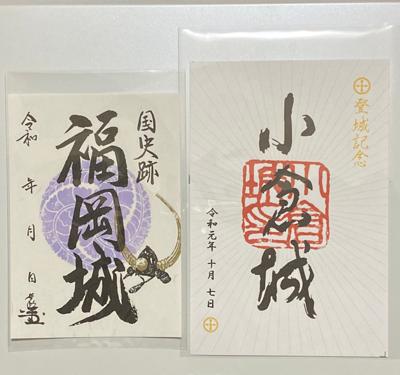 国史跡
福岡城
令和 年 月 日
登城記念
小倉城
令和元年十月七日